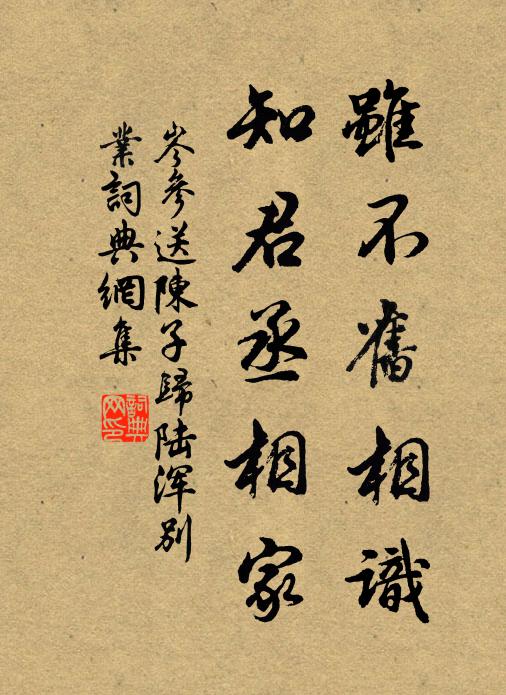 雖不舊相識
知君丞相家
岑參送陳子歸陆渾别
業詞典網集
詞典
网印